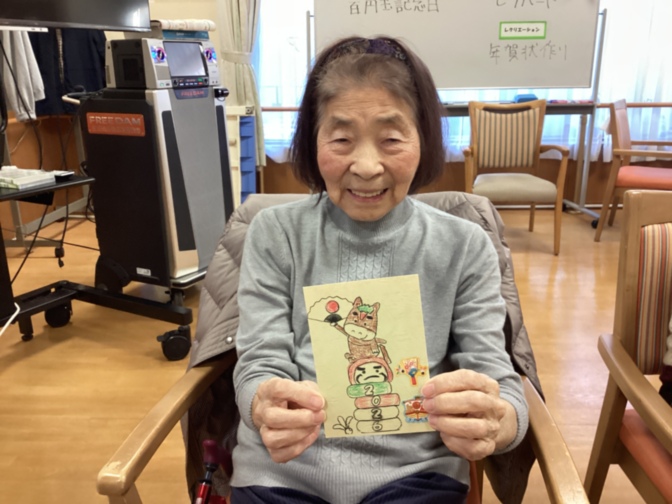 百円玉記念日
レクリエーション
年賀状作り
FREEDAM
2
0
2
6